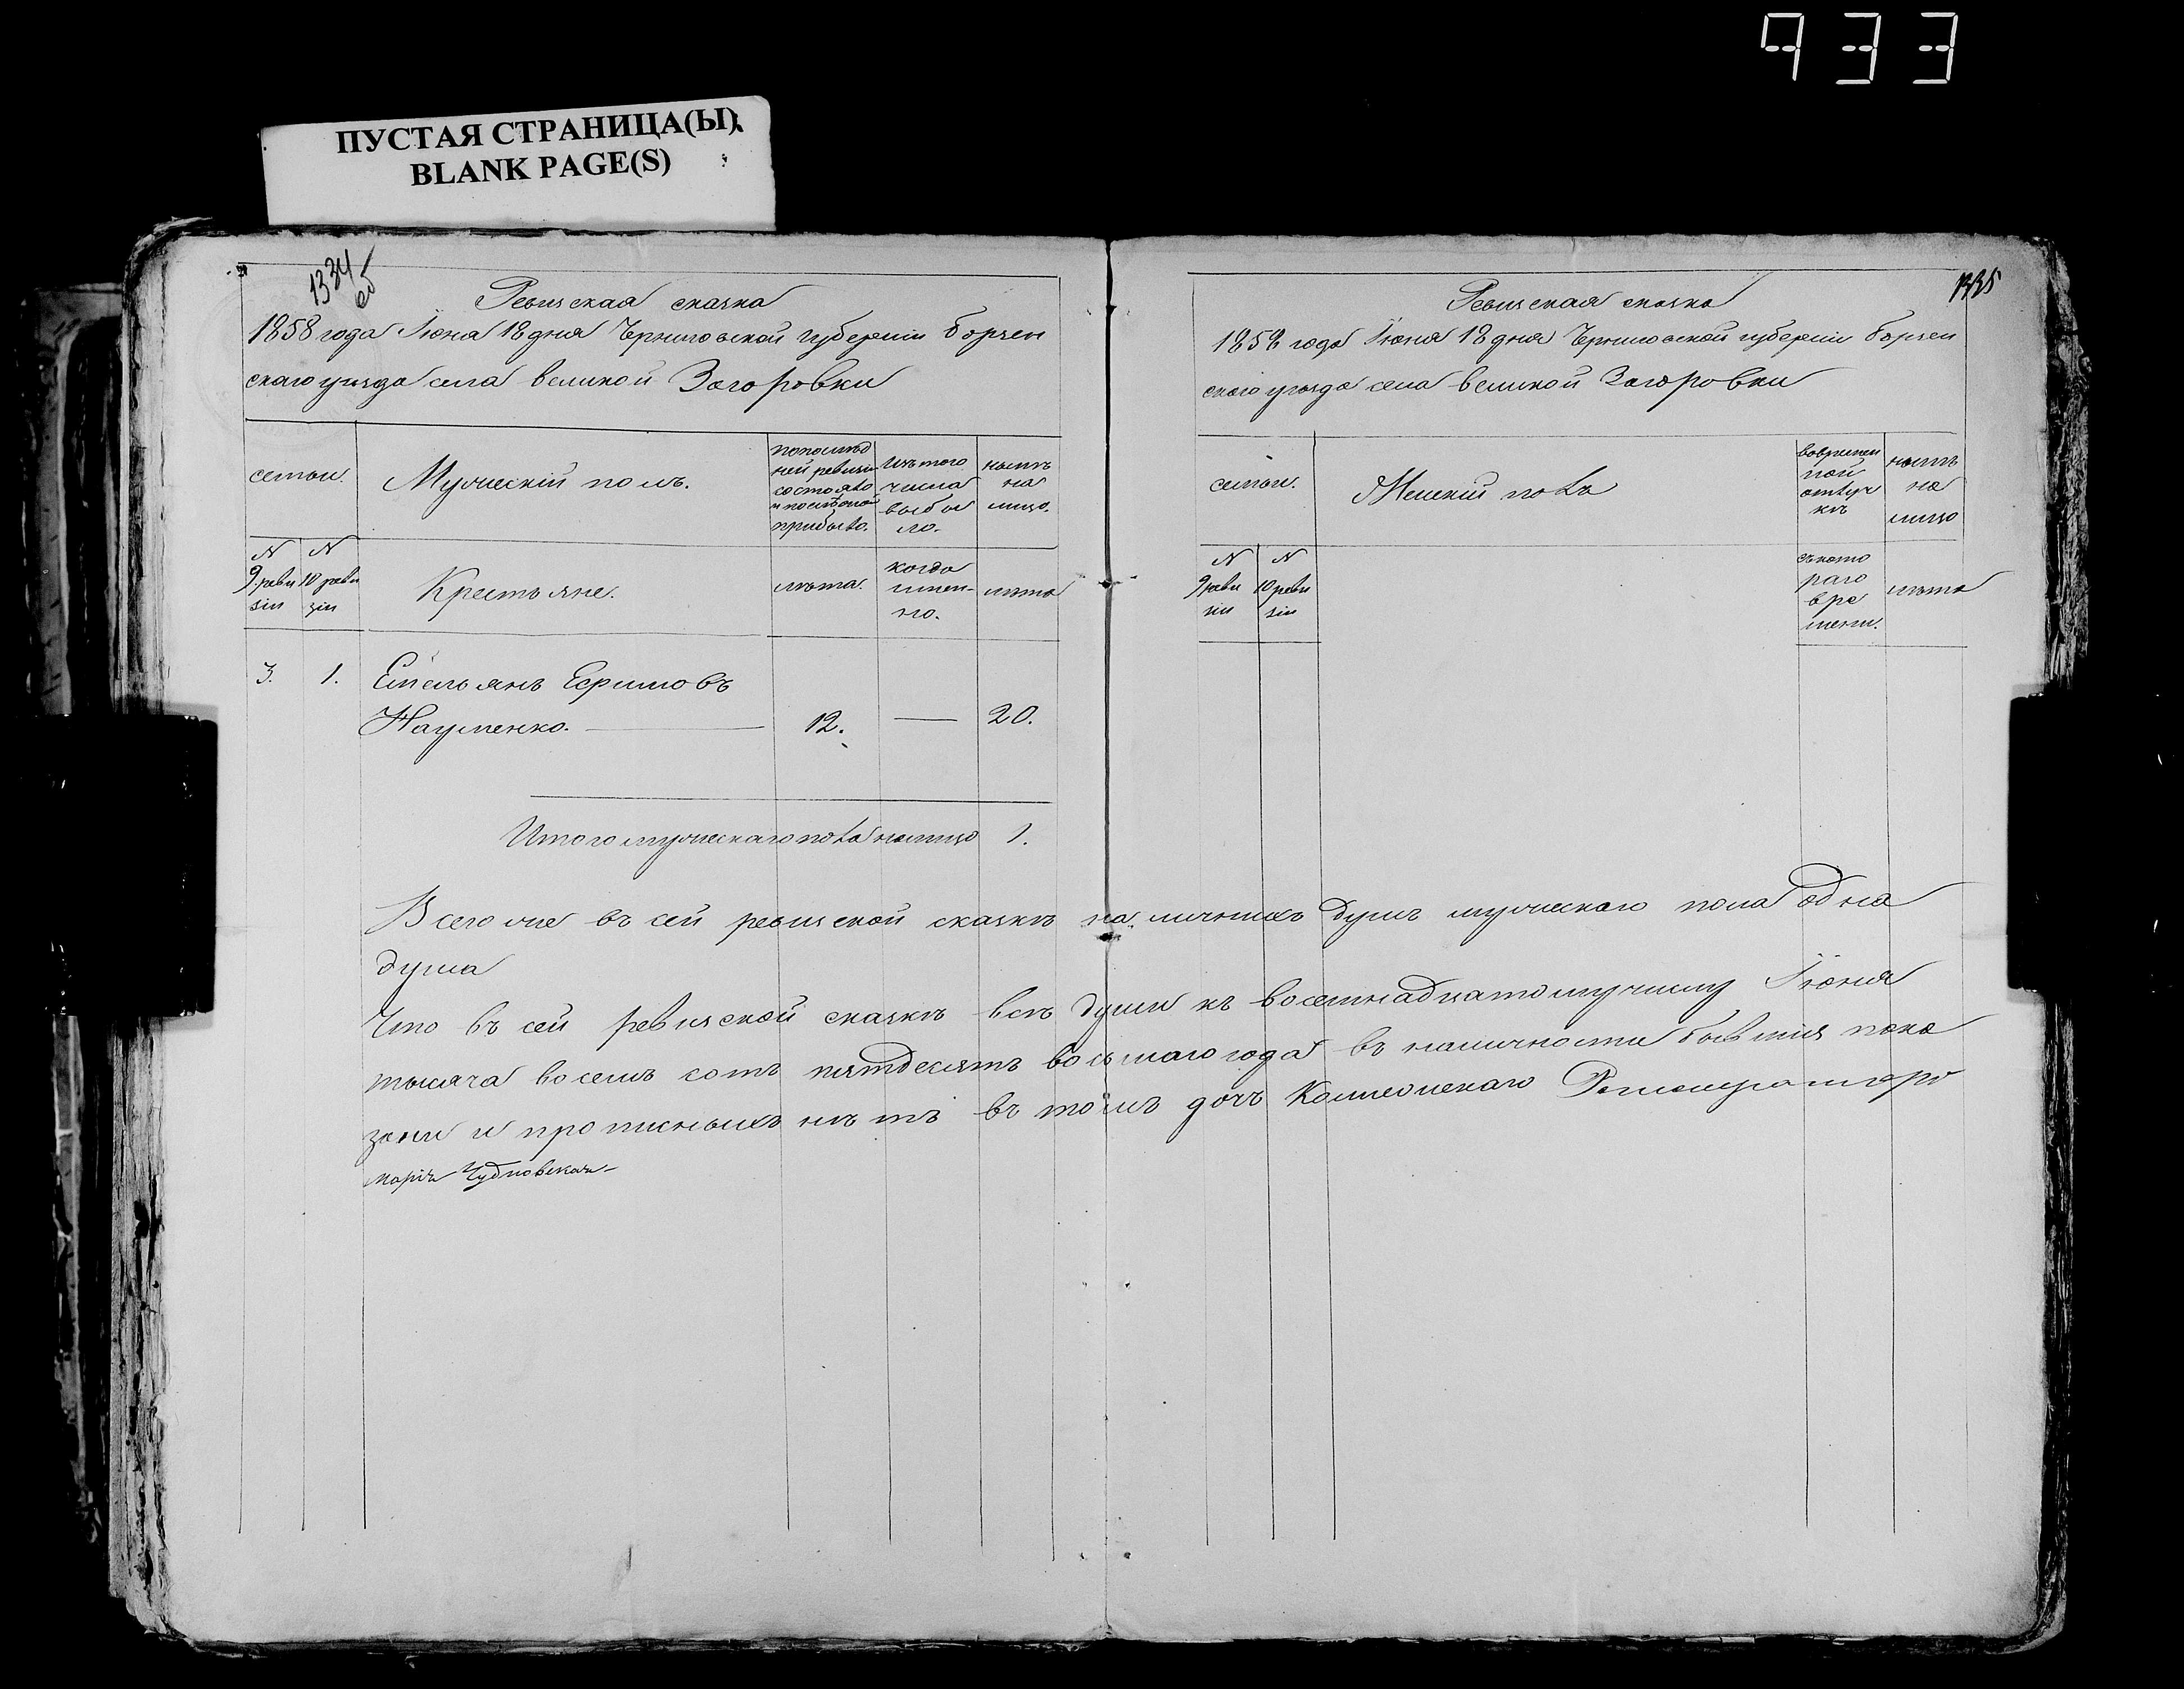 933
ПУСТАЯ СТРАНИЦА(Ы)
BLANK PAGE(S)
1334
об
Ревизская сказка
1858 года Июня 18 дня Черниговской губерніи борзен
скаго уѣзда села великой Загоровки
семьи.
Мужескій полъ.
по послѣд
ней ревизіи
состояло
и послѣ оной
прибыло.
Изъ того
числа
выбы
ло.
нынѣ
на
лицо.
N
9 реви
зіи
N
10 реви
зіи
Крестьяне.
лѣта.
когда
имен-
но.
лѣта
3. 1. Емельянъ Ефимовъ
Науменко. 12. — 20.
Итого мужескаго пола налицо 1.
1335
Ревизская сказка
1858 года Июня 18 дня Черниговской губерніи борзен
скаго уѣзда села великой Загоровки
семьи.
Женскій полъ
во времен
ной
отлуч
кѣ
нынѣ
на
лицо
N
9 реви
зіи
N
10 реви
зіи
съ кото
раго
вре
мени.
лѣта
Всего же въ сей ревизской сказкѣ на личныхъ душъ мужескаго пола одна
душа
Что въ сей ревизской сказкѣ всѣ души къ восемнадцатому числу Июня
тысяча восемь сотъ пятдесятъ восьмаго года въ наличности бывшия пока
заны и прописныхъ нѣтъ въ томъ дочь Коллежскаго Регистратора
Марія Чудновская